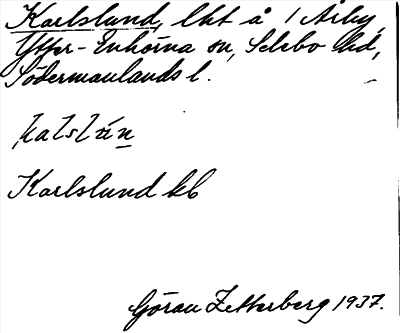 Karlslund, lht å 1 Årby,
Ytter-Enhörna sn, Selebo hd,
Södermanlands l.
Karlslund kb
Göran Zetterberg 1937.